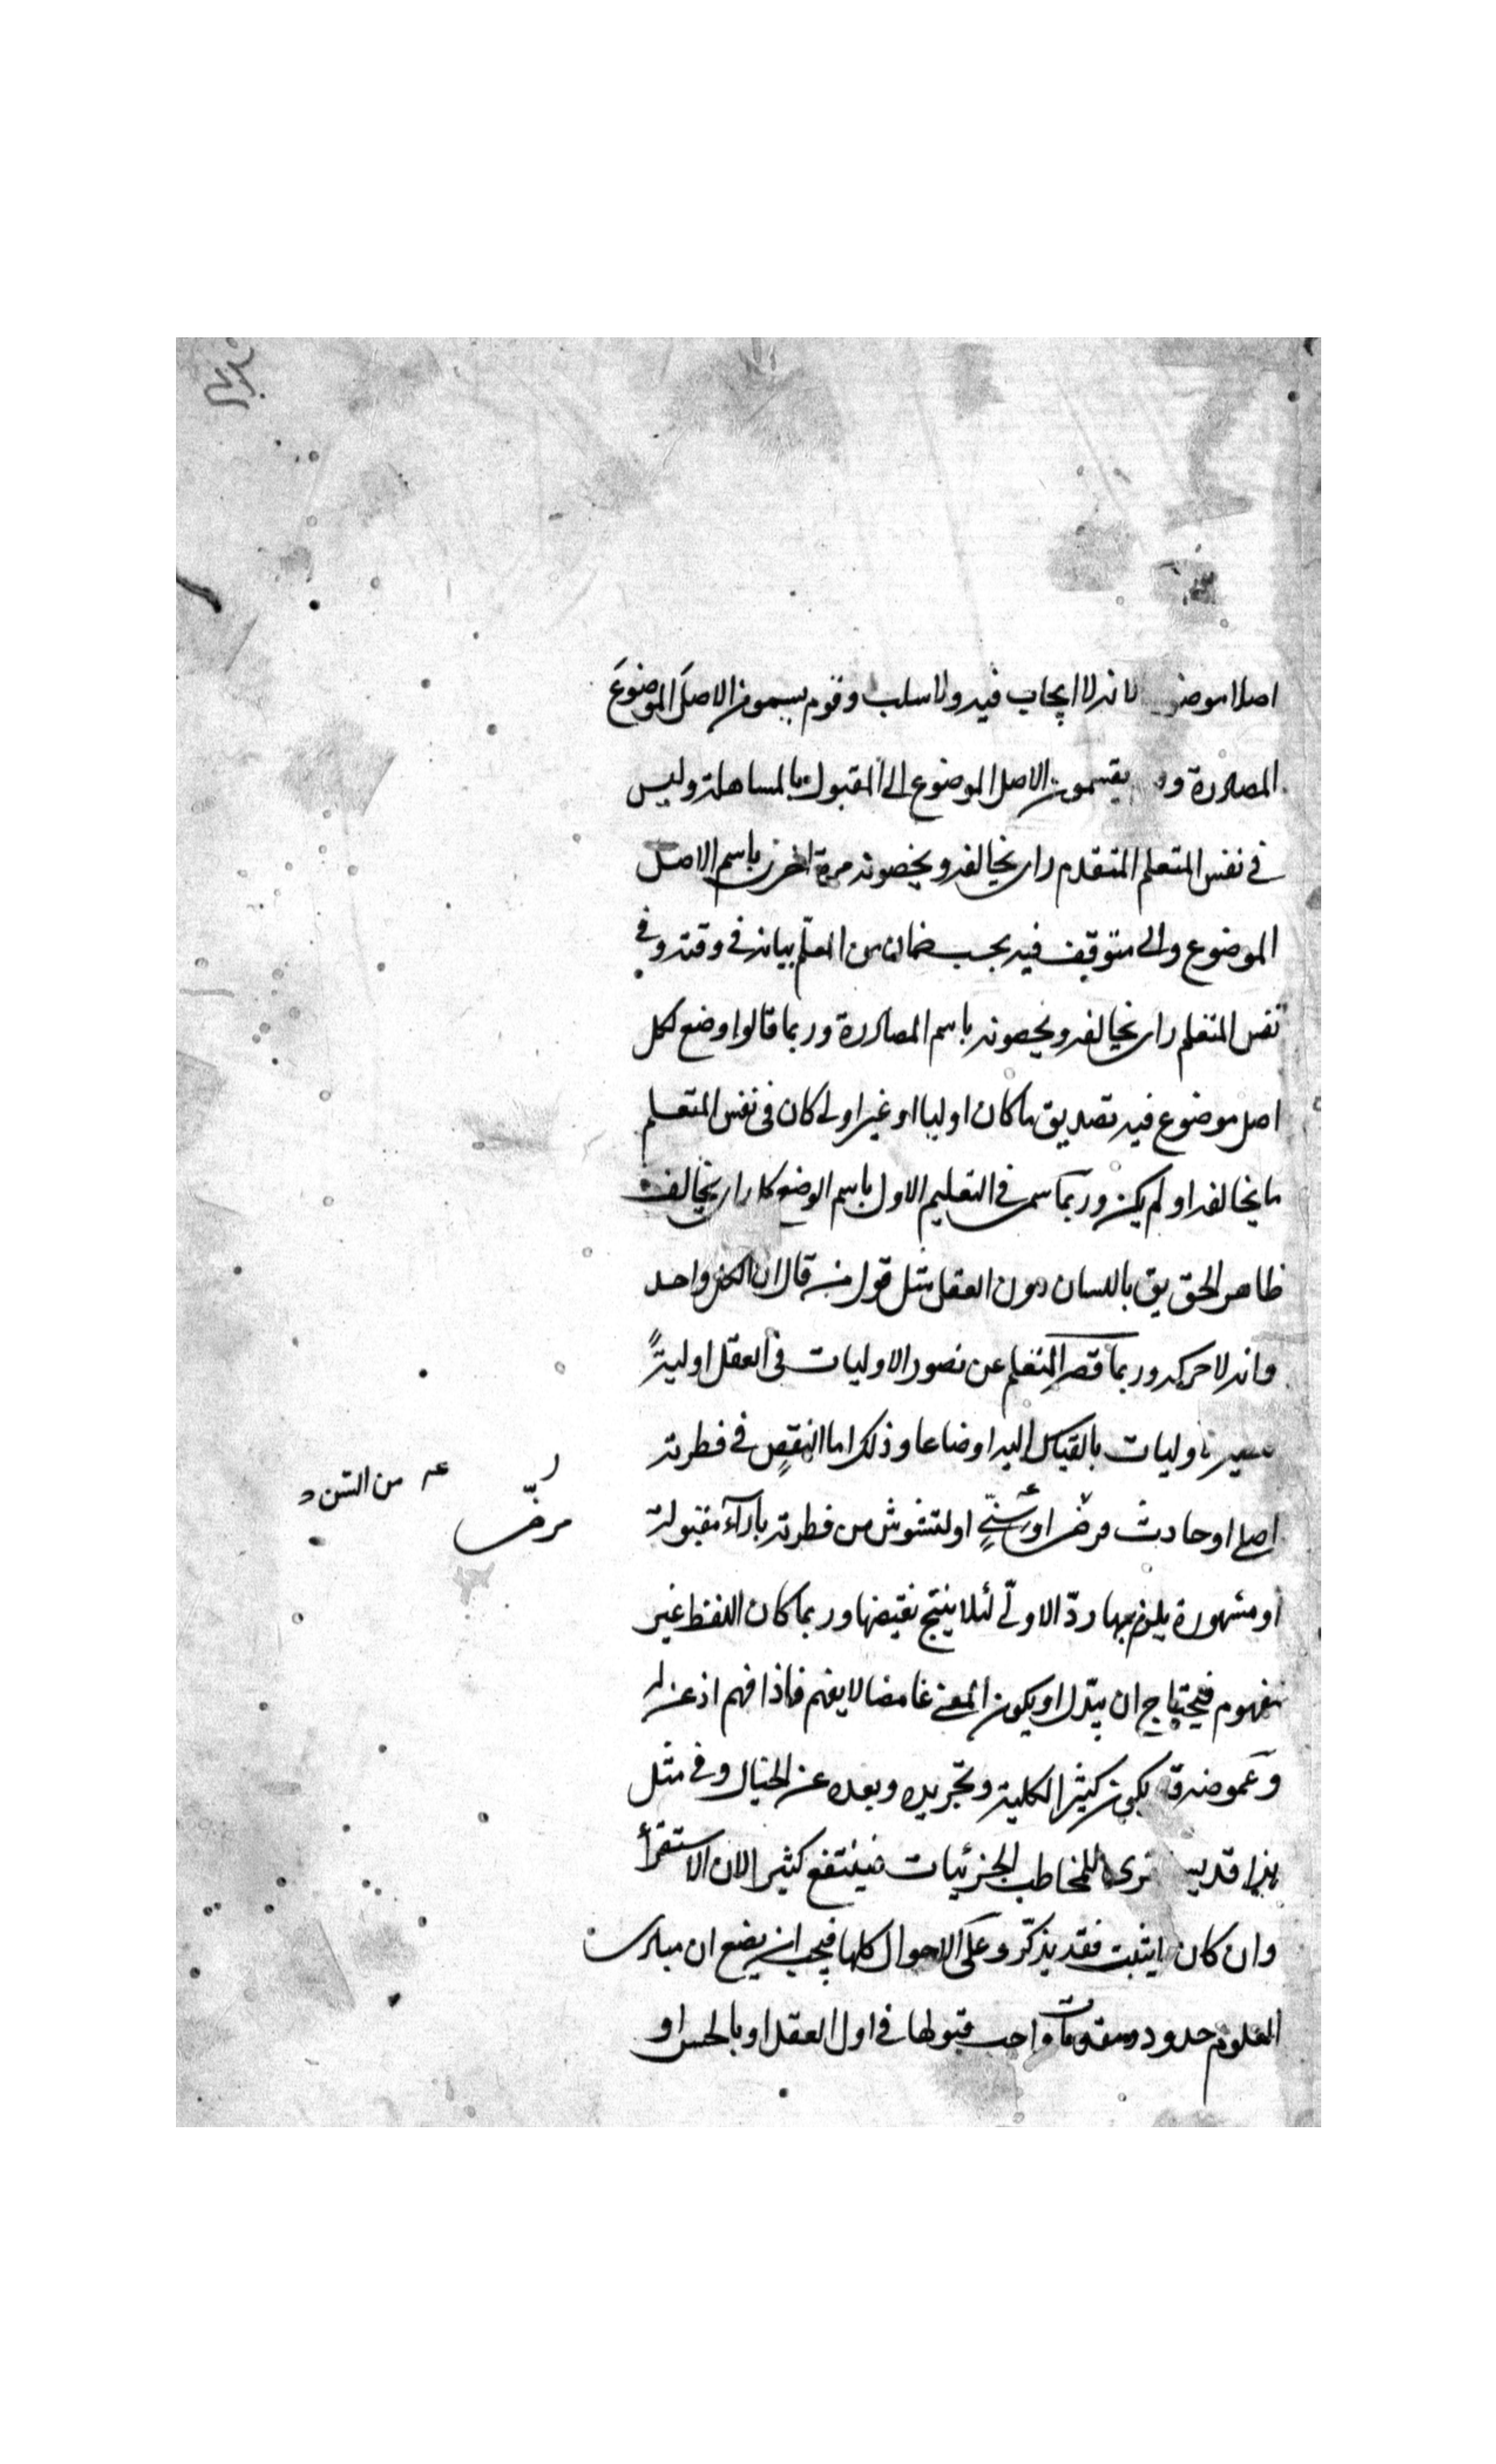 اصلا موضو لانه لا ايجاب فيه ولا سلب وقوم يسمون الاصل الموضوع
المصادرة و يقسمون الاصل الموضوع الى المقبول بالمساهلة وليس
في نفس المتعلم المتقدم راى يخالفه ويخصونه مرة اخرى باسم الاصل
الموضوع والى متوقف فيه بحسب ضمان من المعلم بيانه في وقته وفي
نفس المتعلم راى يخالفه ويخصونه باسم المصادرة وربما قالوا وضع لكل
اصل موضوع فيه تصديق ما كان اوليا او غير اولى كان في نفس المتعلم
ما يخالفه او لم يكن وربما سمى في التعليم الاول باسم الوضع كل راى يخالف
ظاهر الحق يق باللسان دون العقل مثل قول من قال ان الكل واحد
وانه لا حركة وربما قصر المتعلم عن تصور الاوليات في العقل اولية
اوليات بالقياس اليه اوضاعا وذلك اما لنقص في فطرته
اصلى او حادث مرضى او سنى او لتشوش من فطرته باراء مقبولة
مرضى
عه من السن
او مشهورة يلزم بها رد الاولى لئلا ينتج نقيضها وربما كان اللفظ غير
مفهوم فيحتاج ان يبدل او يكون المعنى غامضا لا يفهم فاذا فهم اذعن له
وغموضه قد يكون كثيرا لكليته وتجريده وبعده عن الخيال وفي مثل
هذا قد للمخاطب الجزئيات فينتفع كثيرا لان الاستقرا
وان كان يثبت فقد يذكر وعلى الاحوال كلها فيجب ان يضع ان مبادى
العلوم حدود ومقدمات واجب قبولها في اول العقل او بالحس او